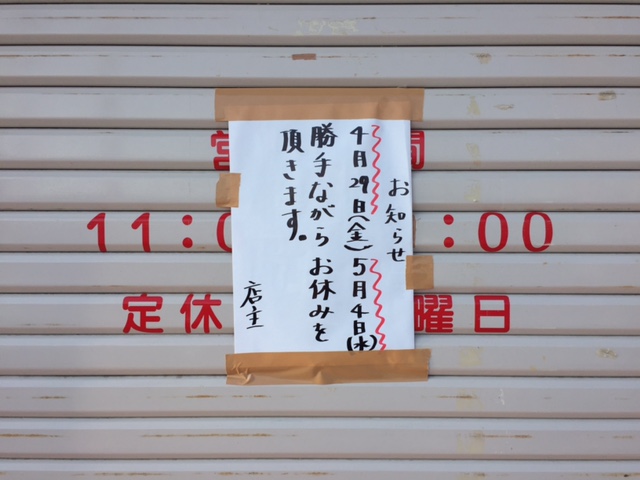 お知らせ
4月29日(金)5月4日(水)
勝手ながらお休みを
頂きます。
店主
間
11:0 :00
定休 曜日